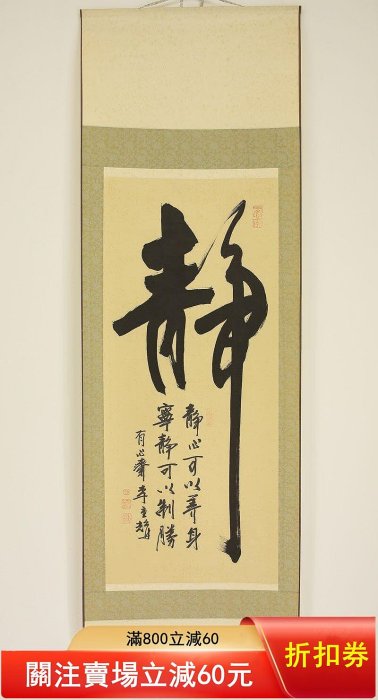 静
静心可以养身
寧静可以制勝
有心齋
滿800立減60
關注賣場立減60元
折扣券